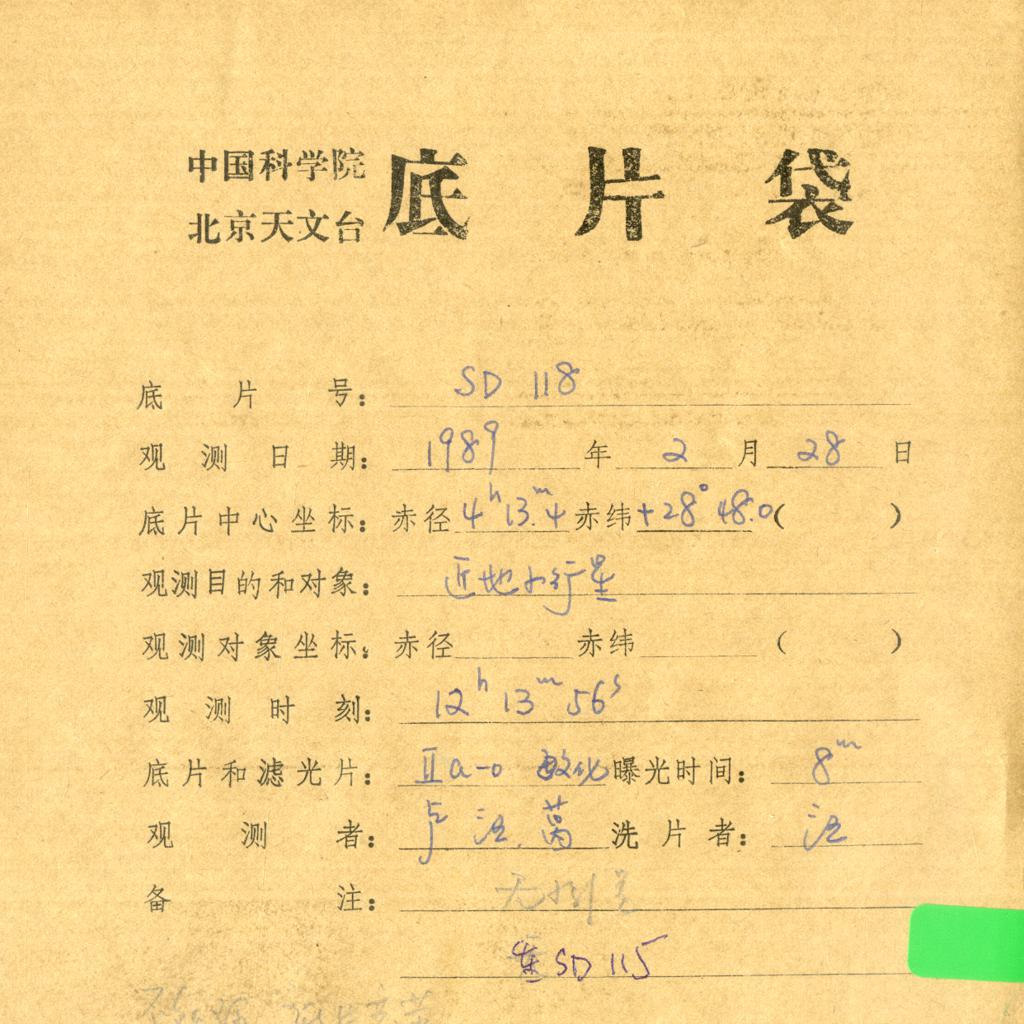 中国科学院
北京天文台
底片袋
底片号： SD 118
观测日期： 1989 年 2 月 28 日
底片中心坐标： 赤径 4h 13m.4 赤纬 +28° 48.0 ( )
观测目的和对象： 近地小行星
观测对象坐标： 赤径 赤纬 ( )
观测时刻： 12h 13m 56s
底片和滤光片： IIa-o 敏化 曝光时间： 8m
观测者： 卢 汪. 洗片者： 汪
备注：
SD 115